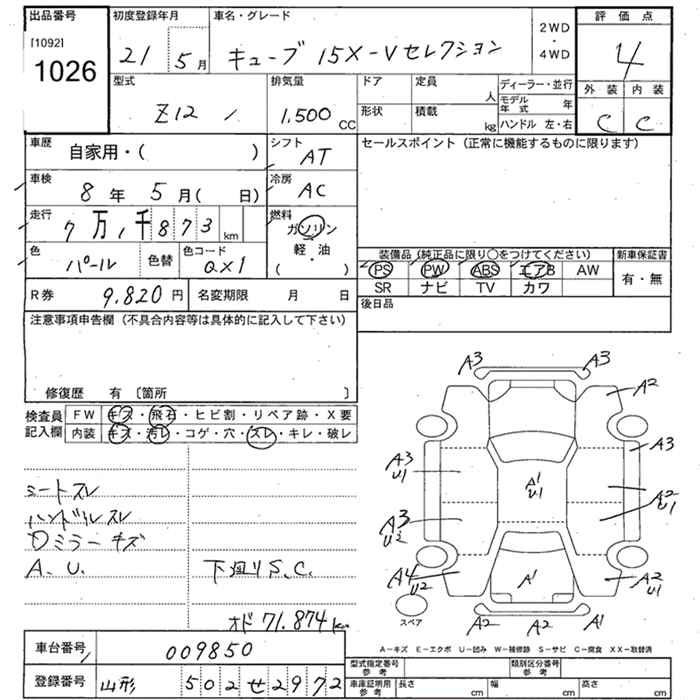 出品番号
[1092]
1026
初度登録年月
21年 5月
車名・グレード
キューブ 15X-Vセレクション
2WD
・
4WD
評価点
4
外装 内装
C C
型式
Z12
排気量
1.500 CC
ドア 定員 人
形状 積載 kg
ディーラー・並行
モデル年式 年
ハンドル 左・右
車歴
自家用・( )
シフト
AT
セールスポイント (正常に機能するものに限ります)
車検
8年 5月( 日)
冷房
AC
走行
7万,千873 km
燃料
ガソリン
軽・油
( )
色
パール
色替
色コード
QX1
装備品 (純正品に限り〇をつけてください) 新車保証書
PS PW ABS エアB AW 有・無
SR ナビ TV カワ
R券 9.820円 名変期限 月 日
後日品
注意事項申告欄 (不具合内容等は具体的に記入して下さい)
修復歴 有 〔箇所 〕
検査員
記入欄
FW キズ・飛石・ヒビ割・リペア跡・X要
内装 キズ・汚レ・コゲ・穴・スレ・キレ・破レ
シートスレ
ハンドルスレ
Dミラーキズ
A.U. 下廻りS.C.
オド 71.874km
A3 A3
A2
A3
A3
U1
A1
U1
A2
U1
A3
U2
A4
U2
A1
A2
U1
スペア
A2 A2 A1
A-キズ E-エクボ U-凹み W-補修跡 S-サビ C-腐食 XX-取替済
車台番号 009850
登録番号 山形 502 せ 2972
型式指定番号
参考
類別区分番号
参考
車庫証明用
参考
長さ cm 幅 cm 高さ cm